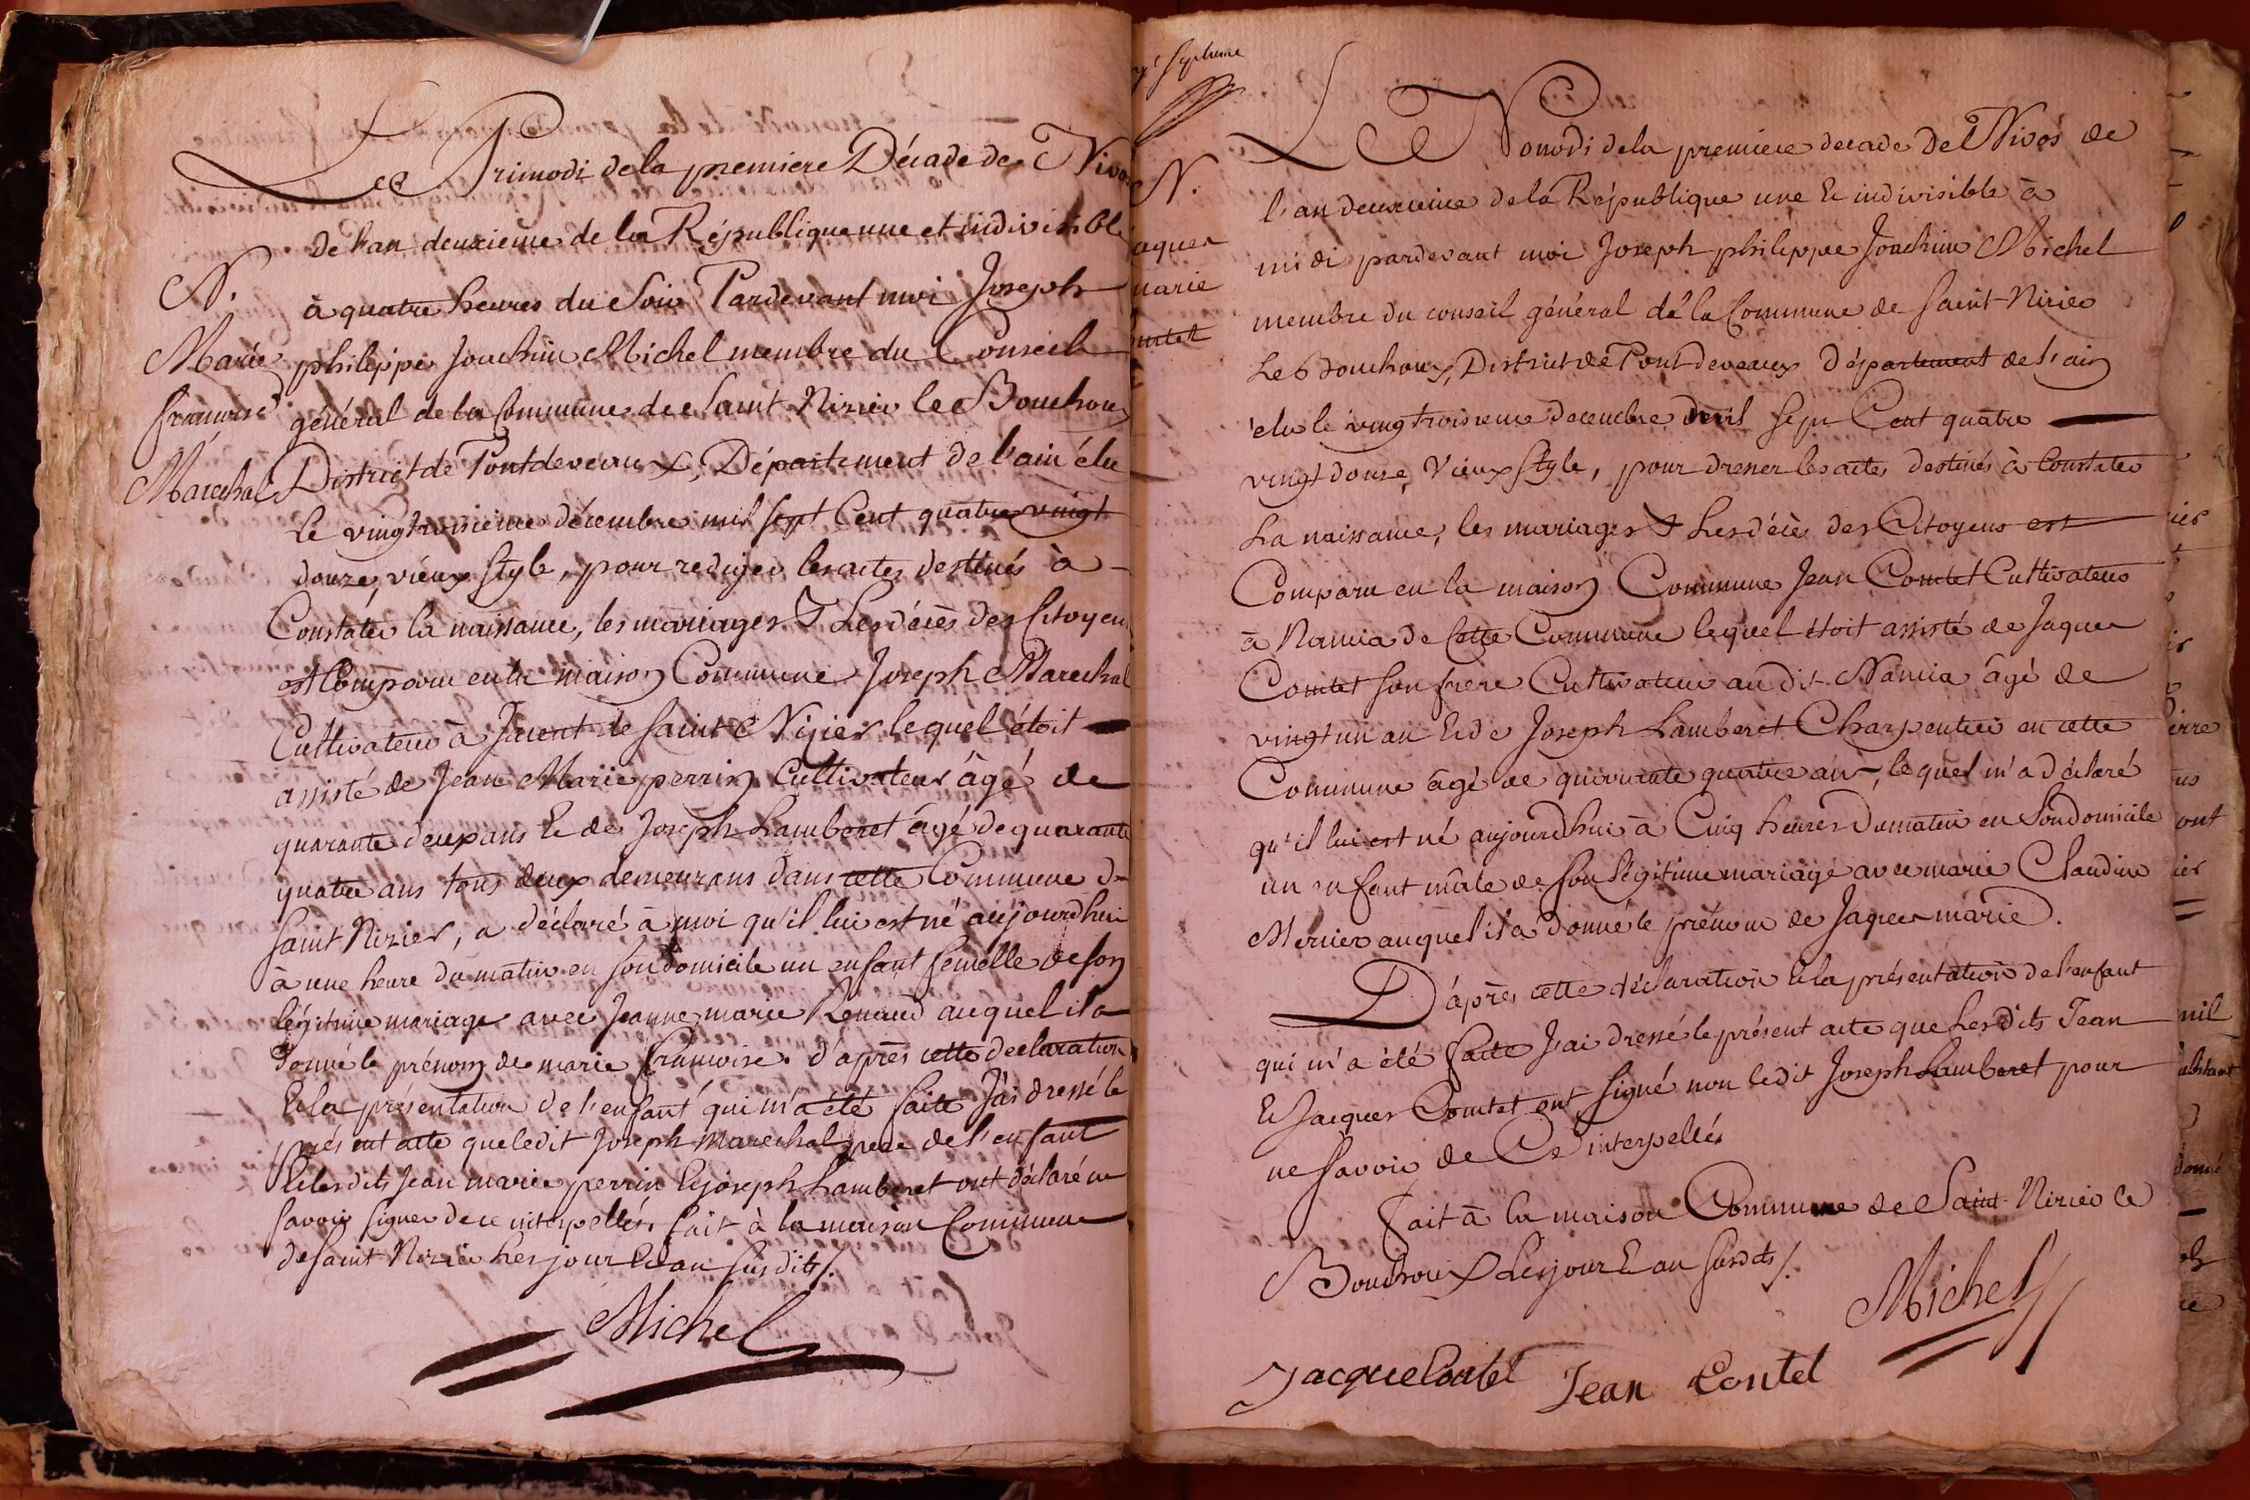 Le Primodi de la premiere Décade de Nivo
de l'an deuxieme de la République une et indivisible
N.
à quatre heures du Soir Pardevant moi Joseph
Marie
philippe Joachim Michel membre du Conseil
francoise
général de la Commune de Saint Nizier le Bouchoux
Marechal
District de Pontdevaux, Département de l'ain élu
le vingtroisieme décembre mil sept Cent quatre vingt
douze, vieux style, pour rediger les actes destinés à
Constater la naissance, les mariages & les décès des Citoyens
est Comparu en la maison Commune Joseph Marechal
Cultivateur à de Saint Nizier lequel étoit
assisté de Jean Marie perrin Cultivateur âgé de
quarante deux ans & de Joseph Lamberet âgé de quarante
quatre ans tous deux demeurans dans cette Commune de
Saint Nizier, a déclaré à moi qu'il lui est né aujourdhui
à une heure du matin en son domicile un enfant femelle de son
légitime mariage avec Jeanne marie Renaud auquel il a
donné le prénom de marie francoise. d'après cette declaration
& la présentation de l'enfant qui m'a été faite J'ai dressé le
présent acte que ledit Joseph Marechal pere de l'enfant
& lesdits Jean marie perrin & joseph Lamberet ont déclaré ne
savoir signer de ce interpellés. fait à la maison Commune
de Saint Nizier les jour & an susdits/.
Michel
N.
aques
marie
ontet
Le Nonodi de la premiere decade de Nivos de
l'an deuxieme de la République une & indivisible à
midi pardevant moi Joseph philippe Joachim Michel
membre du conseil général de la Commune de Saint-Nizier
Le Bouchoux, District de Pontdevaux Département de l'ain
élu le vingtroisieme decembre mil sept Cent quatre
vingt douze, Vieux style, pour dresser les actes destinés à Constater
La naissance, les mariages & les décès des Citoyens est
Comparu en la maison Commune Jean Contet Cultivateur
à Nancia de Cette Commune lequel étoit assisté de Jaques
Contet son frere Cultivateur au dit Nancia âgé de
vingt un an & de Joseph Lamberet Charpentier en cette
Commune âgé de quarante quatre ans, lequel m'a déclaré
qu'il lui est né aujourdhui à Cinq heures du matin en Son domicile
un enfant mâle de son légitime mariage avec marie Claudine
Mernier auquel il a donné le prénom de Jaques marie.
D'après cette déclaration & la présentation de l'enfant
qui m'a été faite J'ai dressé le présent acte que Lesdits Jean
& Jacques Contet ont signé non ledit Joseph Lamberet pour
ne savoir de Ce interpellés
fait à la maison Commune de Saint Nizier le
Bouchoux Les jour & an susdits/.
Michel
Jacque Contet Jean Contet